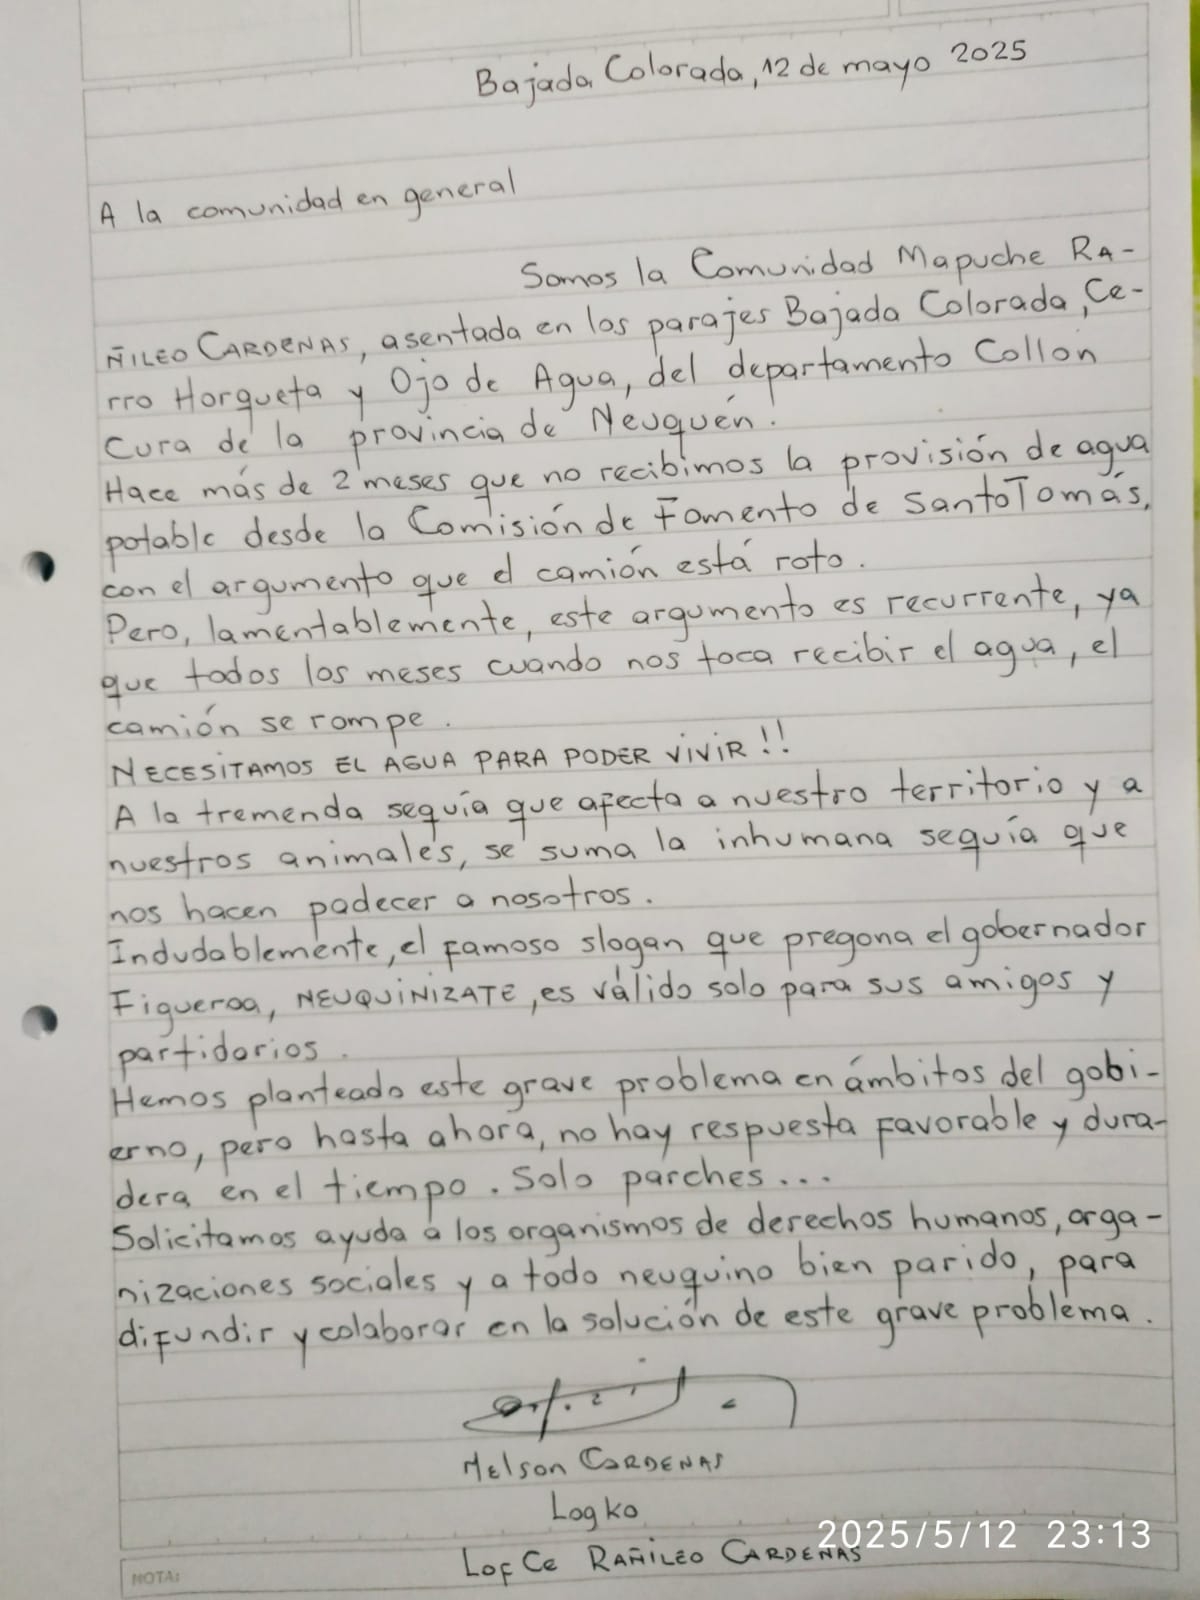 Bajada Colorada, 12 de mayo 2025
A la comunidad en general
Somos la Comunidad Mapuche RA-
ÑILEO CARDENAS, asentada en los parajes Bajada Colorada, Ce-
rro Horqueta y Ojo de Agua, del departamento Collon
Cura de la provincia de Neuquén.
Hace más de 2 meses que no recibimos la provisión de agua
potable desde la Comisión de Fomento de Santo Tomás,
con el argumento que el camión está roto.
Pero, lamentablemente, este argumento es recurrente, ya
que todos los meses cuando nos toca recibir el agua, el
camión se rompe.
NECESITAMOS EL AGUA PARA PODER VIVIR!!
A la tremenda sequía que afecta a nuestro territorio y a
nuestros animales, se suma la inhumana sequía que
nos hacen padecer a nosotros.
Indudablemente, el famoso slogan que pregona el gobernador
Figueroa, NEUQUINIZATE, es válido solo para sus amigos y
partidarios.
Hemos planteado este grave problema en ámbitos del gobi-
erno, pero hasta ahora, no hay respuesta favorable y dura-
dera en el tiempo. Solo parches...
Solicitamos ayuda a los organismos de derechos humanos, orga-
nizaciones sociales y a todo neuquino bien parido, para
difundir y colaborar en la solución de este grave problema.
Nelson CARDENAS
Logko
Lof Ce RAÑILEO CARDENAS
2025/5/12 23:13
NOTA: